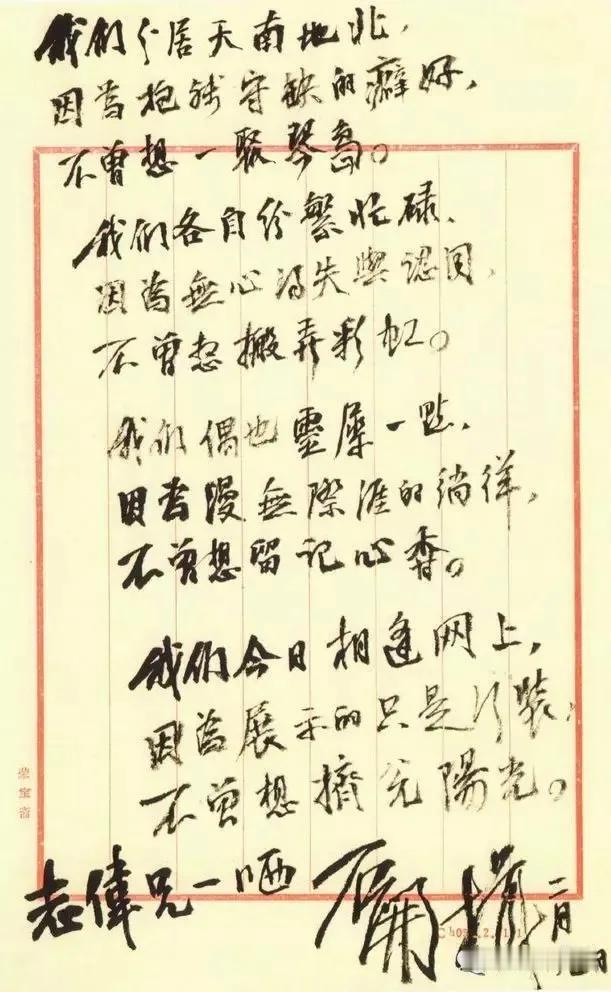 我们分居天南地北,
因為抱残守缺的癖好,
不曾想一聚琴島。
我们各自纷繁忙碌,
因為無心得失與認同,
不曾想搬弄彩虹。
我们偶也靈犀一點,
因為漫無際涯的徜徉,
不曾想留记心香。
我们今日相逢网上,
因為展示的只是行装,
不曾想擠兑陽光。
榮宝斎
志偉兄一哂 石開 二月